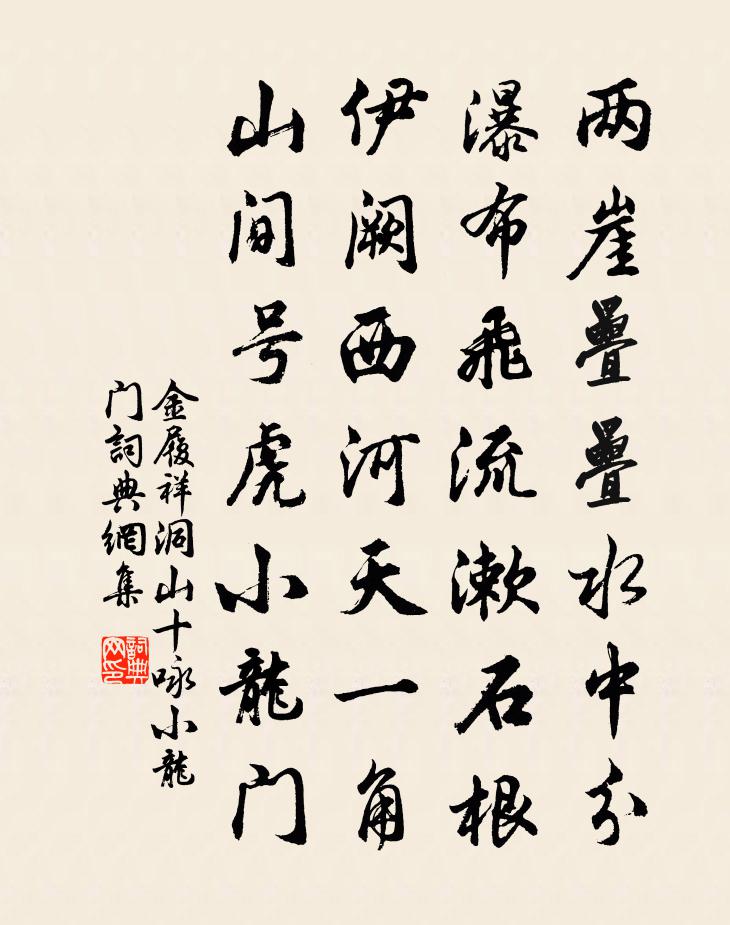 两崖疊疊水中分
瀑布飛流漱石根
伊阙西河天一角
山间号虎小龍门
金履祥洞山十咏小龍
门詞典網集
詞典网印